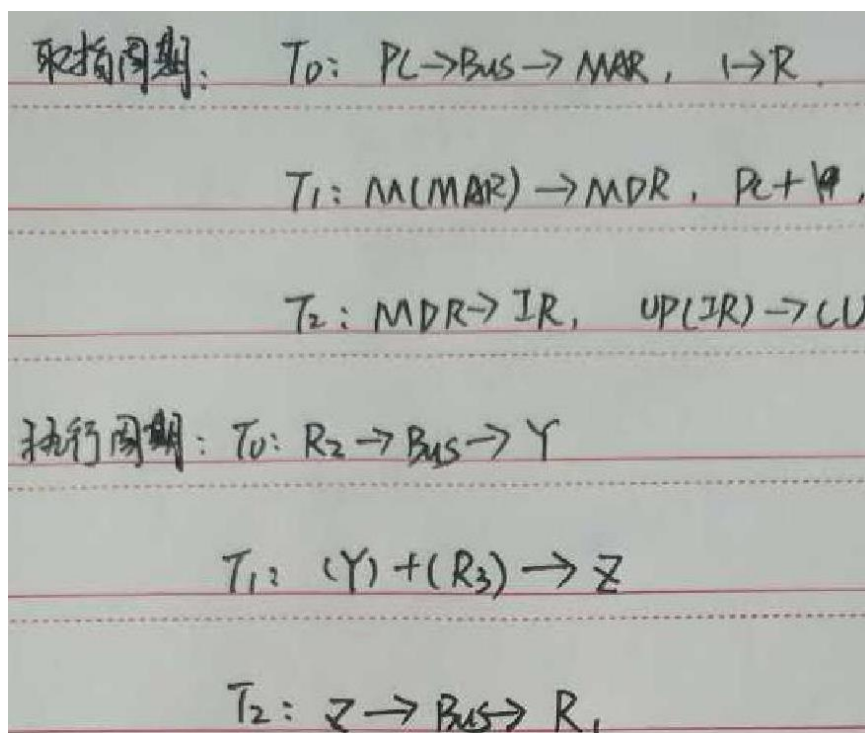 取指周期: T0: PC→Bus→MAR, 1→R
T1: M(MAR)→MDR, PC+1,
T2: MDR→IR, OP(IR)→CU
执行周期: T0: R2→Bus→Y
T1: (Y)+(R3)→Z
T2: Z→Bus→R1